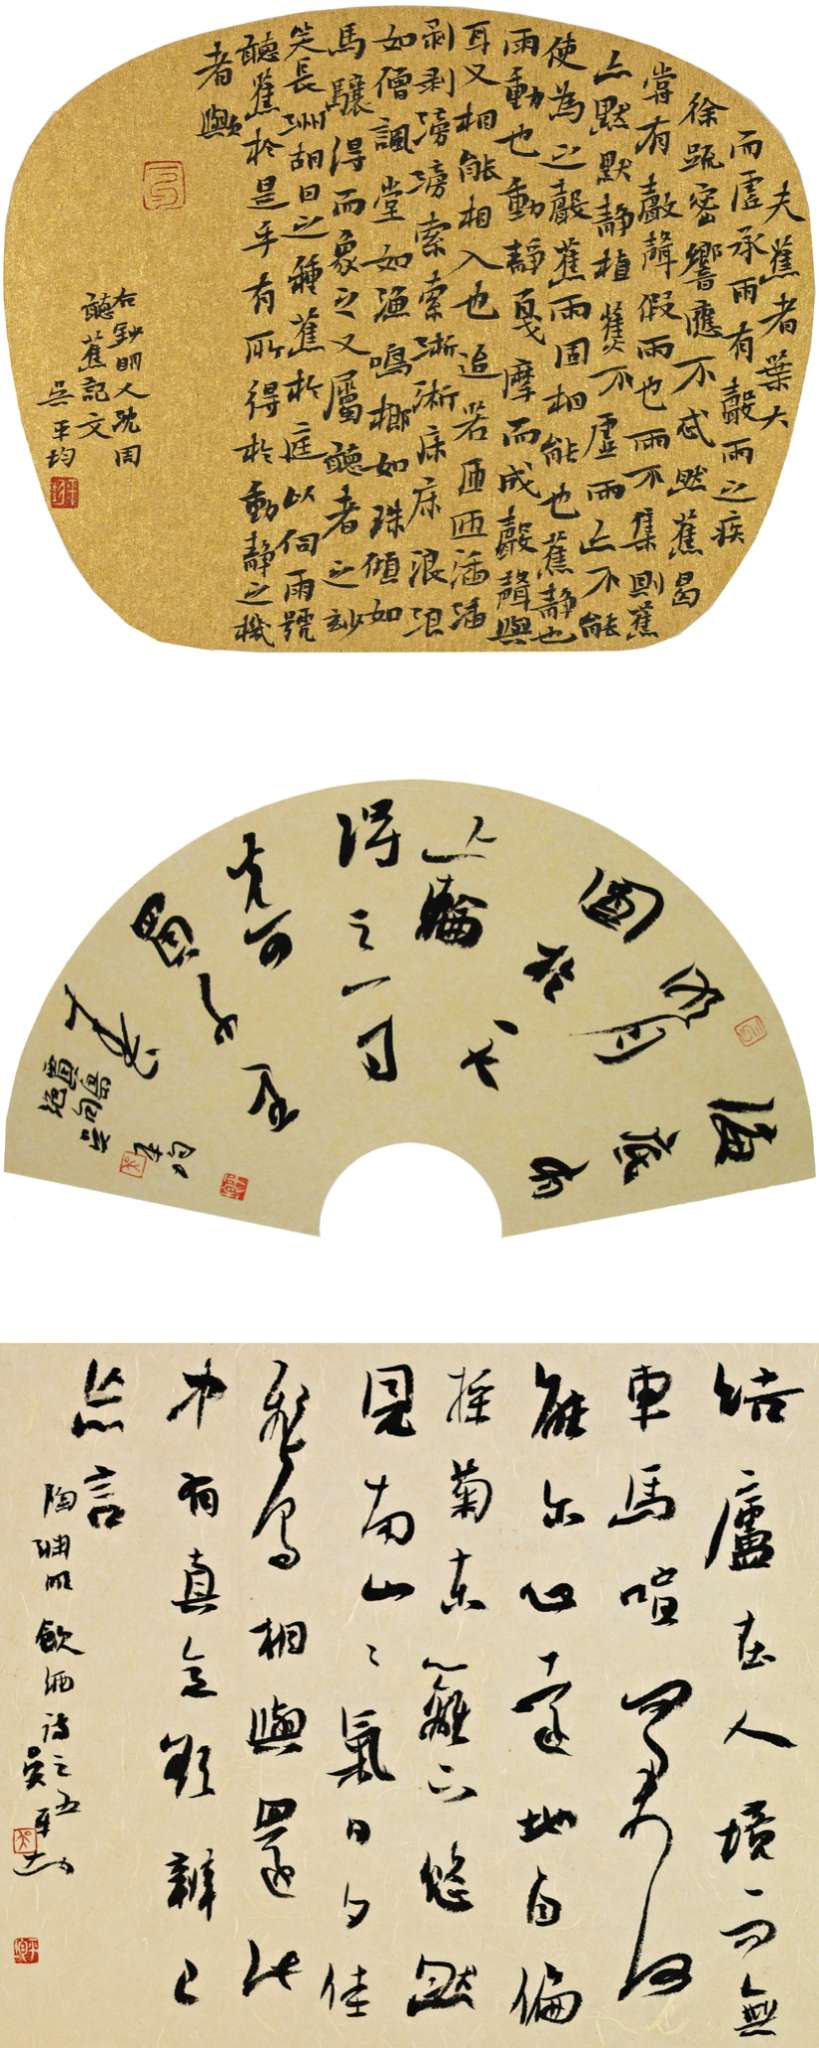 夫蕉者葉大
而虛承雨有聲雨之疾
徐疏密響應不忒然蕉曷
嘗有聲聲假雨也雨不集則蕉
亦默默靜植蕉不虛雨亦不能
使為之聲蕉雨固相能也蕉靜也
雨動也動靜戛摩而成聲聲與
耳又相能相入也迨若匝匝插插
剥剥滂滂索索淅淅床床浪浪
如僧諷堂如漁鳴榔如珠傾如
馬驤得而象之又屬聽者之妙
笑長洲胡日之種蕉於庭以伺雨號
聽蕉於是乎有所得於動靜之機
者歟
右鈔明人沈周
聽蕉記文
吳平均
海底有
明月
圓於天
上輪
得之一寸
光可
買千里
春
賈島句
結廬在人境而無
車馬喧問君何
能尔心遠地自偏
採菊東籬下悠然
見南山山氣日夕佳
飛鳥相與還此
中有真意欲辨已
忘言
陶淵明飲酒詩之五
吳平均